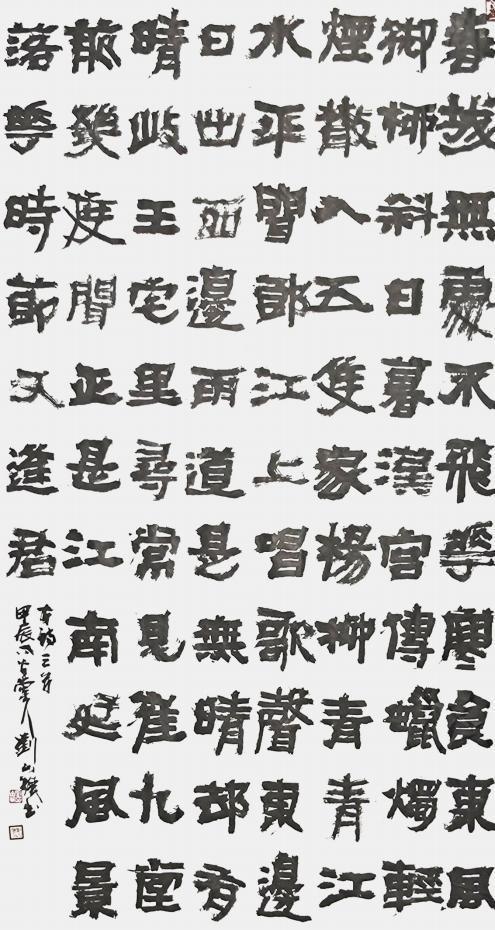 春城無處不飛華寒食東風
御柳斜日暮漢宮傳蠟燭輕
煙散入五隻家楊柳青青江
水平聞郎江上唱歌聲東邊
日出西邊雨道是無晴却有
晴岐王宅里尋常見崔九堂
前幾度聞正是江南好風景
落華時節又逢君
唐詩三首
甲辰 劉